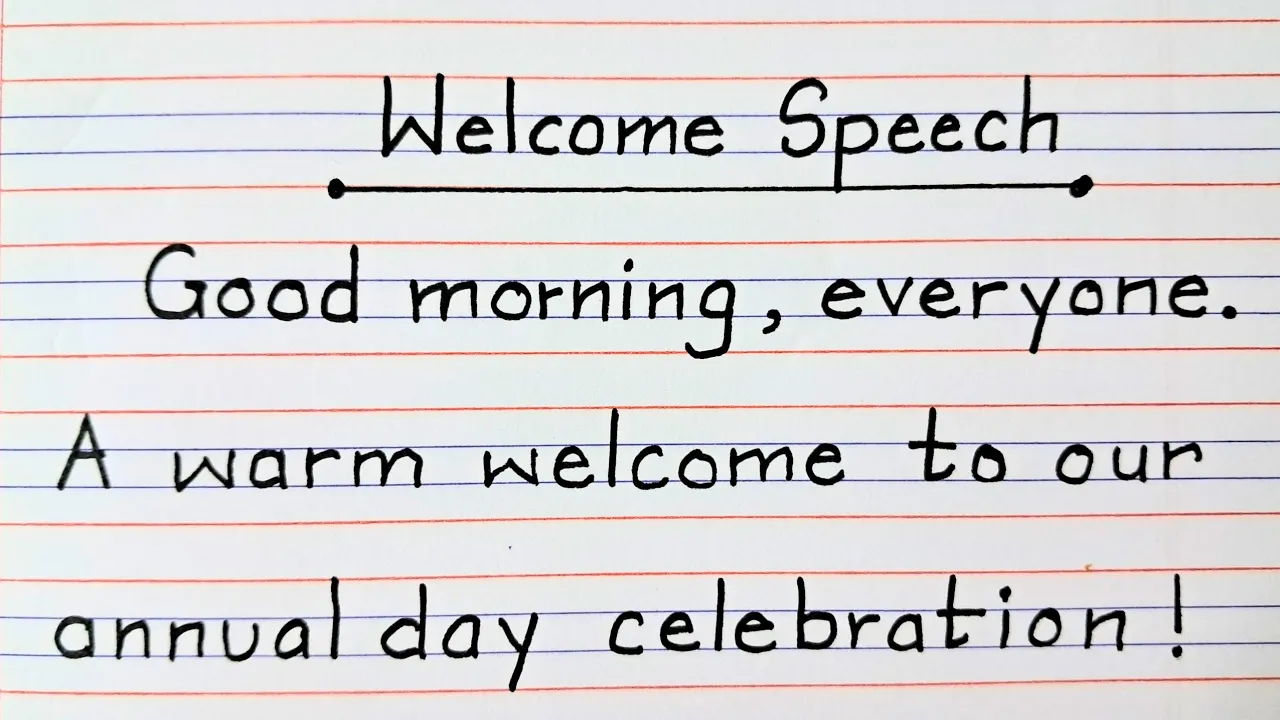 Welcome Speech
Good morning, everyone.
A warm welcome to our
annual day celebration!